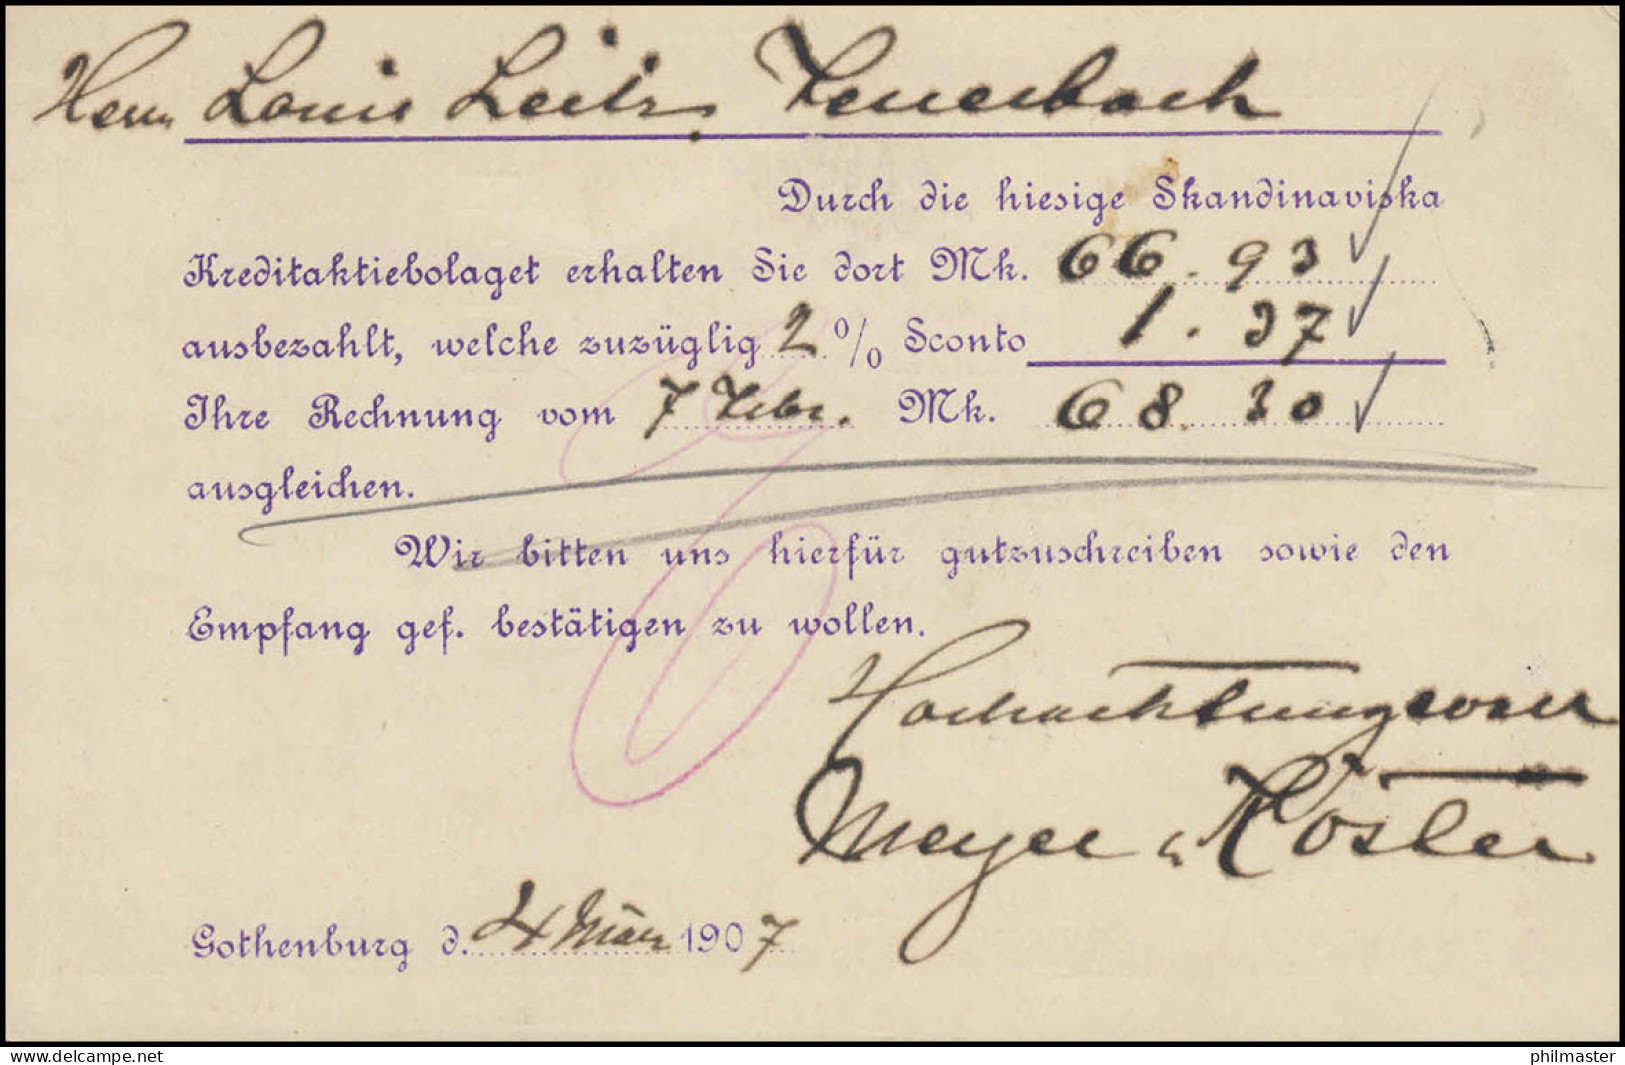 Herrn Louis Leitz, Feuerbach
Durch die hiesige Skandinaviska
Kreditaktiebolaget erhalten Sie dort Mk. 66.93
ausbezahlt, welche zuzüglig 2 % Sconto 1.37
Ihre Rechnung vom 7 Febr. Mk. 68.30
ausgleichen.
Wir bitten uns hierfür gutzuschreiben sowie den
Empfang gef. bestätigen zu wollen.
Hochachtungsvoll
Meyer & Köster
Gothenburg d. 4 März 1907
philmaster